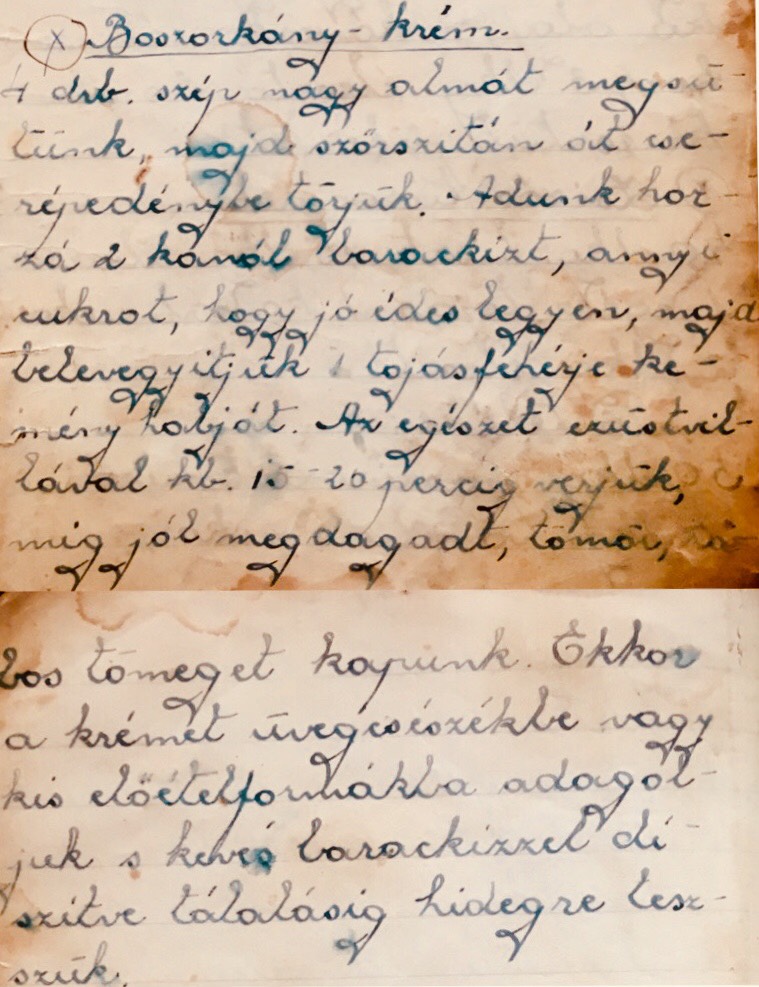 x Boszorkány-krém.
4 drb. szép nagy almát megsü-
tünk, majd szőrszitán át cse-
répedénybe törjük. Adunk hoz-
zá 2 kanál barackízt, annyi
cukrot, hogy jó édes legyen, majd
belevegyítjük 1 tojásfehérje ke-
mény habját. Az egészet ezüstvil-
lával kb. 15-20 percig verjük,
míg jól megdagadt, tömör, ha-
bos tömeget kapunk. Ekkor
a krémet üvegcsészékbe vagy
kis előételformákba adagol-
juk s kevés barackízzel dí-
szítve tálalásig hidegre tesz-
szük.